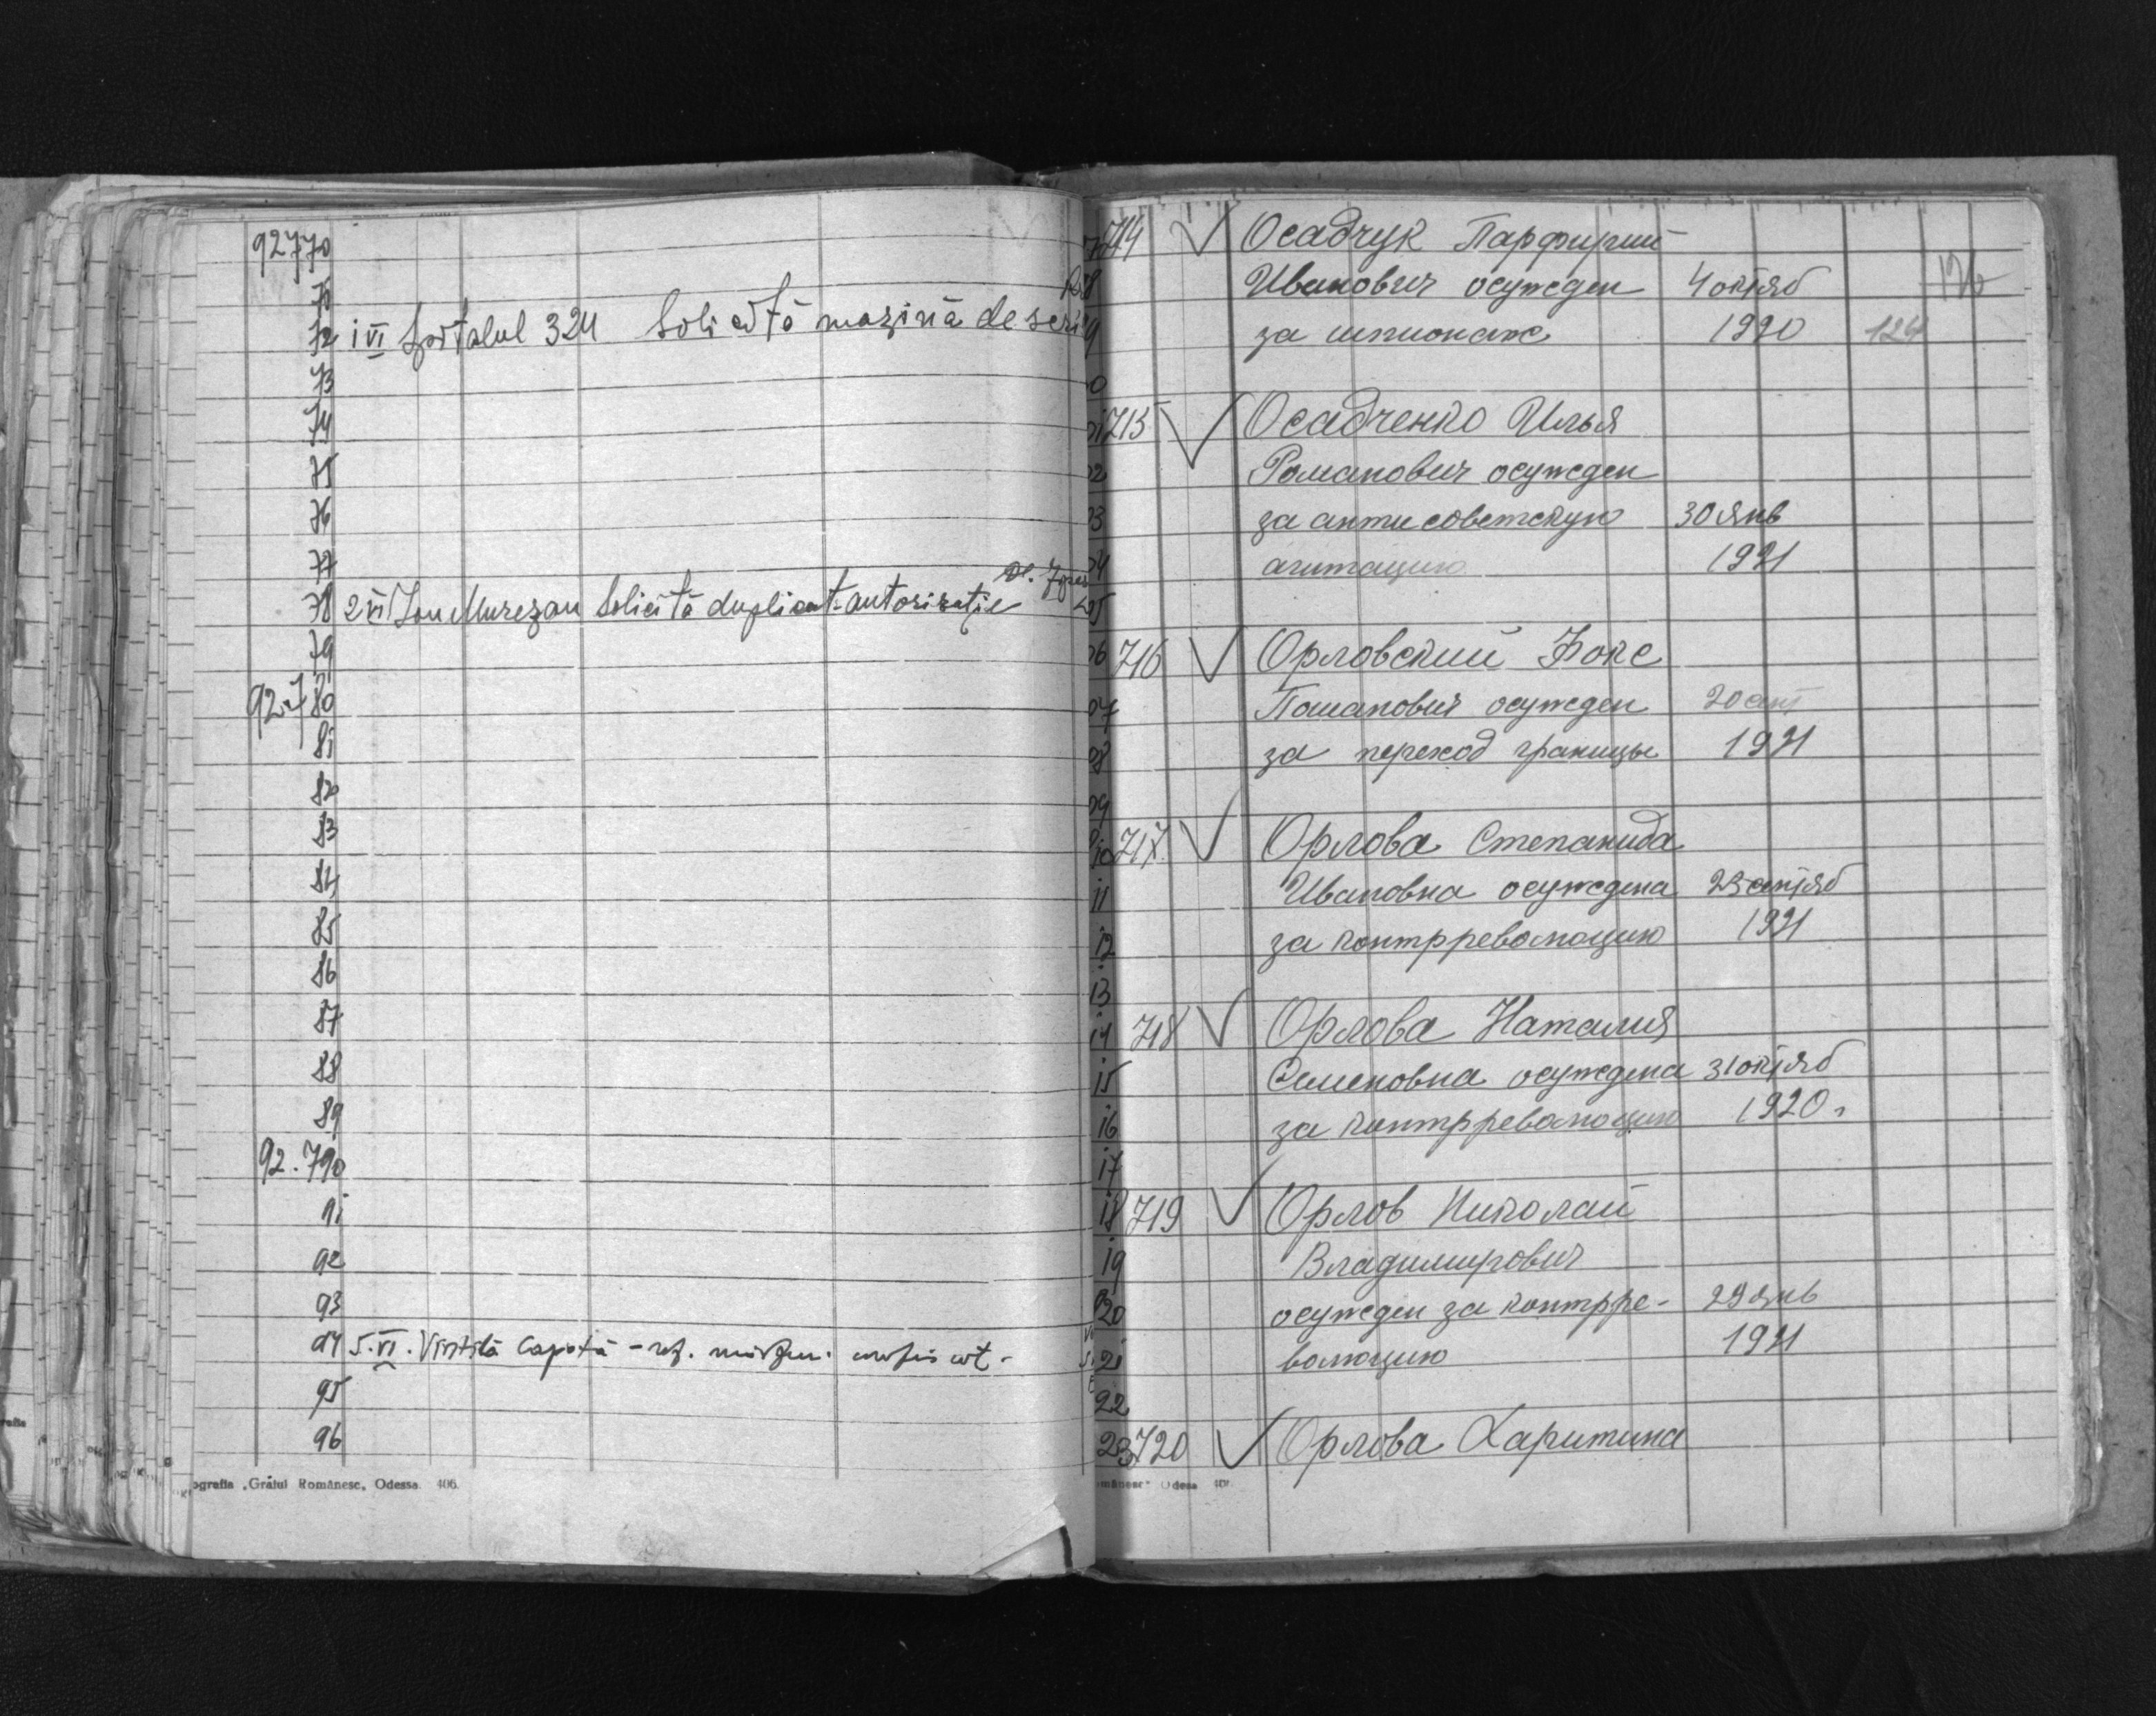 92770
71
72 1 VI Spitalul 324 Solicită mașină de scri
73
74
75
76
77
78 2 VI Ion Mureșan Solicită duplicat autorizație
79
92780
81
82
83
84
85
86
87
88
89
92.790
91
92
93
94 5.VI. Vintilă Capotă
95
96
ografia „Graiul Românesc„ Odessa. 406.
714 Осадчук Парфирий 126
Иванович осужден 4 октяб
за шпионаж 1940 124
715 Осадченко Илья
Романович осужден
за антисоветскую 30 янв
агитацию 1941
716 Орловский Фокс
осужден
за переход границы 1941
717. Орлова Степанида
Ивановна осуждена
за контрреволюцию 1941
718 Орлова Наталия
Семеновна осуждена 31 октяб
за контрреволюцию 1920г
719 Орлов Николай
Владимирович
осужден за контрре- 29 янв
волюцию 1941
720 Орлова Харитина
mânesc" Odesa 406.